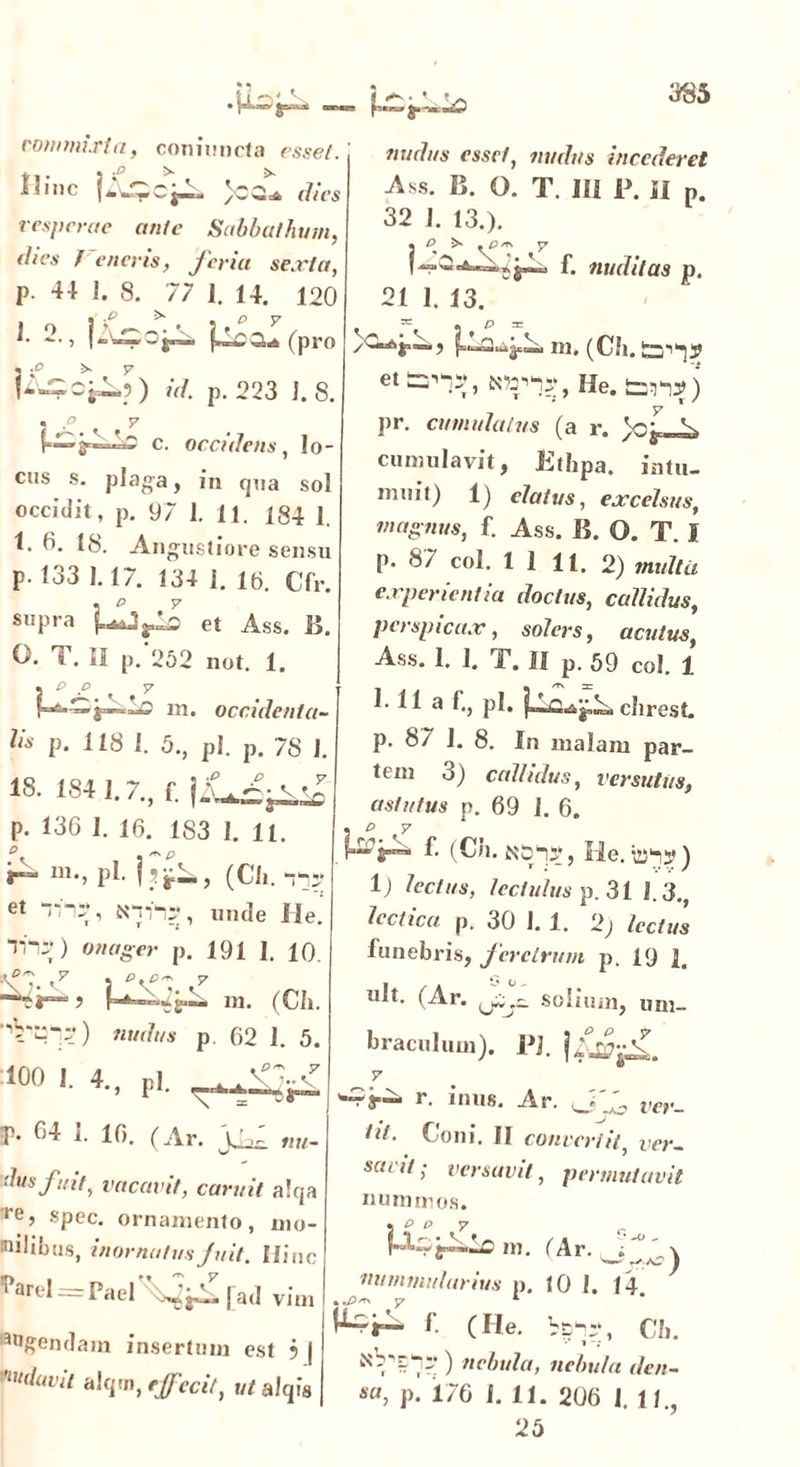 ܡܥܪܒܐ — ܥܪܦܠܐ. 385
commixta, coniuncta esset.
Hinc ܝܘܡ ܥܪܘܒܬܐ dies
vesperae ante Sabbathum,
dies Veneris, feria sexta,
p. 44 l. 8. 77 l. 14. 120
l. 2., ܝܘܡܐ ܥܪܘܒܬܐ (pro
ܕܥܪܘܒܬܐ) id. p. 223 l. 8.
ܡܥܪܒܐ c. occidens, lo-
cus s. plaga, in qua sol
occidit, p. 97 l. 11. 184 l.
1. 6. 18. Angustiore sensu
p. 133 l. 17. 134 l. 16. Cfr.
supra ܡܕܢܚܐ et Ass. B.
O. T. II p. 252 not. 1.
ܡܥܪܒܝܐ m. occidenta-
lis p. 118 l. 5., pl. p. 78 l.
18. 184 l. 7., f. ܡܥܪܒܝܬܐ
p. 136 l. 16. 183 l. 11.
ܥܪܕ m., pl. ܥܪܕܐ, (Ch. ערד
et ערוד, ערודא, unde He.
ערוד) onager p. 191 l. 10.
ܥܪܛܠ, ܥܪܛܠܝܐ m. (Ch.
ערטלי) nudus p. 62 l. 5.
100 l. 4., pl. ܥܪܛܠܝܝܢ
p. 64 l. 16. (Ar. عطل nu-
dus fuit, vacavit, caruit alqa
re, spec. ornamento, mo-
nilibus, inornatus fuit. Hinc
Parel = Pael ܥܪܛܠ [ad vim
augendam insertum est ܪ]
nudavit alqm, effecit, ut alqis
nudus esset, nudus incederet
Ass. B. O. T. III P. II p.
32 l. 13.).
ܥܪܛܠܝܘܬܐ f. nuditas p.
21 l. 13.
ܥܪܝܡ, ܥܪܝܡܐ m. (Ch. ערים
et ערים, ערימא, He. ערום)
pr. cumulatus (a r. ܥܪܡ
cumulavit, Ethpa. intu-
muit) 1) elatus, excelsus,
magnus, f. Ass. B. O. T. I
p. 87 col. 1 l 11. 2) multa
experientia doctus, callidus,
perspicax, solers, acutus,
Ass. l. l. T. II p. 59 col. 1
l. 11 a f., pl. ܥܪܝܡܐ chrest.
p. 87 l. 8. In malam par-
tem 3) callidus, versutus,
astutus p. 69 l. 6.
ܥܪܣܐ f. (Ch. ערסא, He. ערש)
1) lectus, lectulus p. 31 l. 3.,
lectica p. 30 l. 1. 2) lectus
funebris, feretrum p. 19 l.
ult. (Ar. عرش solium, um-
braculum). Pl. ܥܪܣܬܐ.
ܥܪܦ r. inus. Ar. صرف ver-
tit. Coni. II convertit, ver-
savit; versavit, permutavit
nummos.
ܡܥܪܦܢܐ m. (Ar. صيرف)
nummularius p. 10 l. 14.
ܥܪܦܠܐ f. (He. ערפל, Ch.
ערפילא) nebula, nebula den-
sa, p. 176 l. 11. 206 l. 11.,
25